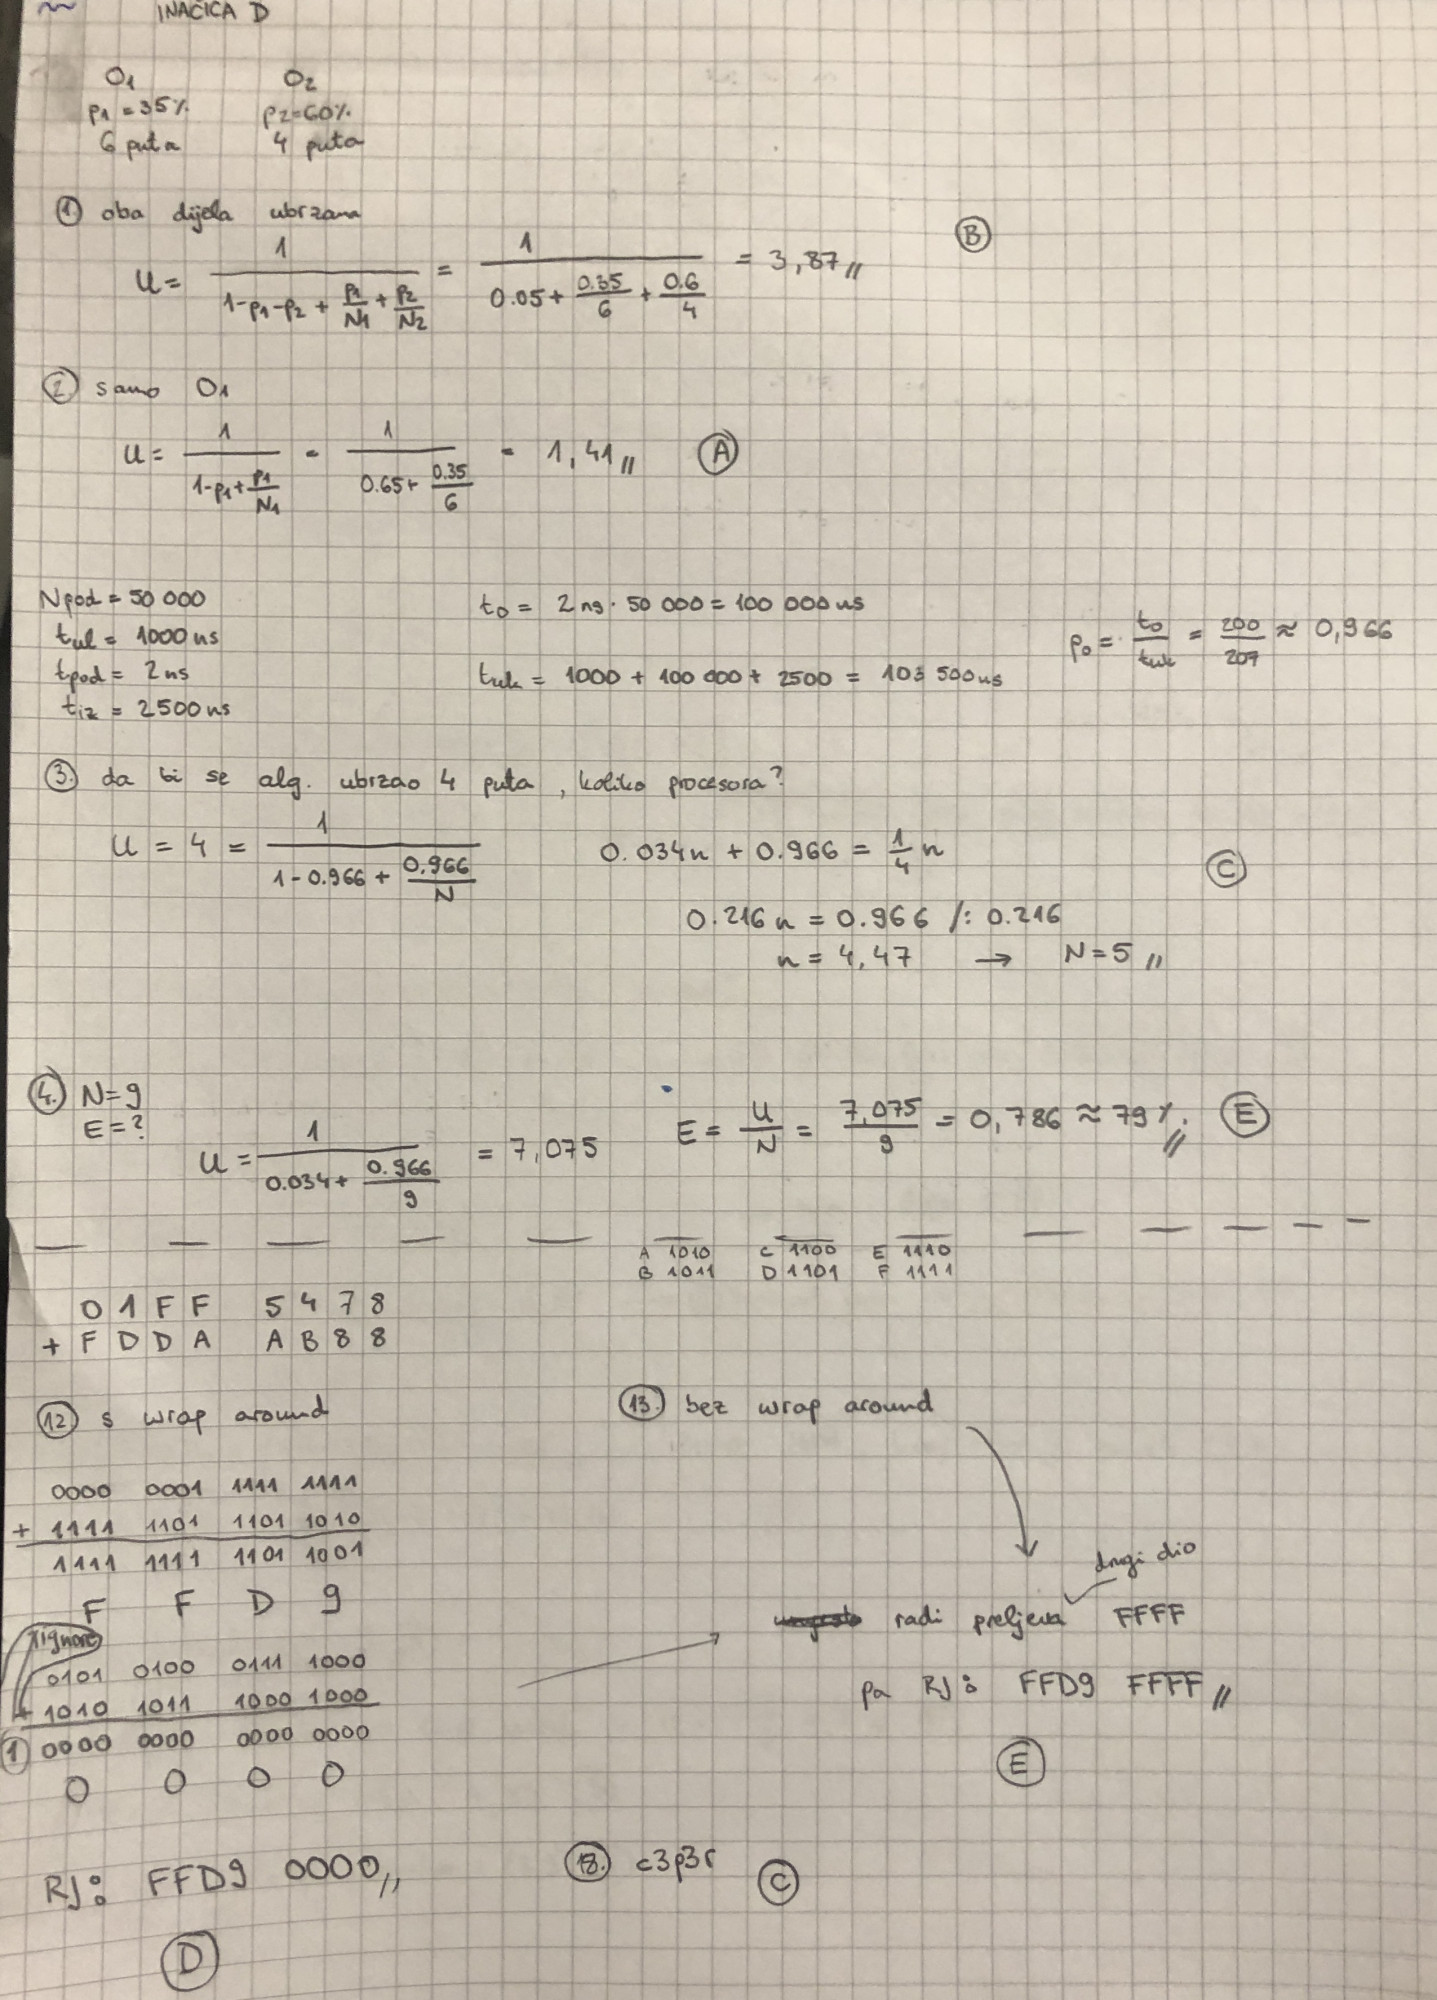 INAČICA D
O1 O2
p1 = 35% p2=60%
6 puta 4 puta
① oba dijela ubrzana
U = 1 / (1-p1-p2 + p1/N1 + p2/N2) = 1 / (0.05 + 0.35/6 + 0.6/4) = 3,87 //
Ⓑ
② samo O1
U = 1 / (1-p1+p1/N1) = 1 / (0.65+ 0.35/6) = 1,41 // Ⓐ
Npod = 50 000
tul = 1000 ns
tpod = 2 ns
tiz = 2500 ns
to = 2 ns · 50 000 = 100 000 ns
tuk = 1000 + 100 000 + 2500 = 103 500 ns
po = to/tuk = 200/207 ≈ 0,966
③. da bi se alg. ubrzao 4 puta, koliko procesora?
U = 4 = 1 / (1-0.966 + 0.966/N)
0.034n + 0.966 = 1/4 n
0.216n = 0.966 /: 0.216
n = 4,47 → N=5 //
Ⓒ
④. N=9
E=?
U = 1 / (0.034+ 0.966/9) = 7,075
E = U/N = 7,075/9 = 0,786 ≈ 79%. // Ⓔ
A 1010 C 1100 E 1110
B 1011 D 1101 F 1111
0 1 F F 5 4 7 8
+ F D D A A B 8 8
⑫ s wrap around
0000 0001 1111 1111
+ 1111 1101 1101 1010
1111 1111 1101 1001
F F D 9
ignore
0101 0100 0111 1000
+ 1010 1011 1000 1000
① 0000 0000 0000 0000
0 0 0 0
RJ: FFD9 0000 //
Ⓓ
⑬. bez wrap around
drugi dio
radi preljeva FFFF
pa RJ: FFD9 FFFF //
Ⓔ
⑱. c3p3r Ⓒ